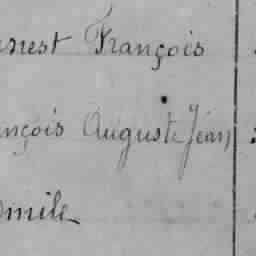 rnest François
ançois Auguste Jean
Emile